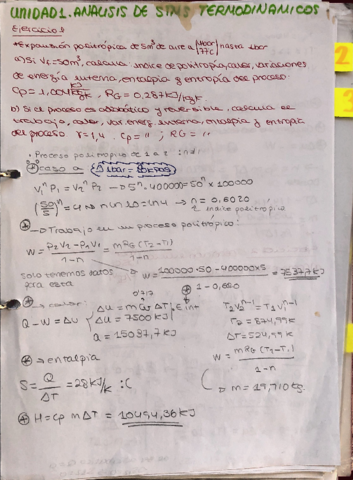 UNIDAD 1. ANALISIS DE STMS TERMODINAMICOS
Ejercicio 1
*Expansión politrópica de 5m³ de aire a 4bar 77ºC hasta 1bar
a) Si Vf=50m³, calcula índice de politropia, calor, variaciones
de energía interna, entalpía y entropía del proceso.
Cp = 1,004 kJ/kgK, RG = 0,287 kJ/kgK
b) Si el proceso es adiabático y reversible, calcula el
trabajo, calor, var. energ. interna, entalpía y entropía
del proceso γ=1,4. Cp = " ; RG = "
• Proceso politrópico de 1 a 2
caso a 1bar = 100 kPa
V₁ⁿ P₁ = V₂ⁿ P₂ → 5ⁿ·400000 = 50ⁿ × 100000
(50/5)ⁿ = 4 → n ln 10 = ln 4 → n = 0,6020
índice politrópico
→ Trabajo en un proceso politrópico:
W = P₂V₂ - P₁V₁ / 1-n = mRG (T₂-T₁) / 1-n
solo tenemos datos para esta
W = 100000×50 - 400000×5 / 1-0,6020 = 7537,7 kJ
→ calor:
Q - W = ΔU
ΔU = m Cv ΔT
ΔU = 7500 kJ
Q = 15037,7 kJ
T₂V₂ⁿ⁻¹ = T₁V₁ⁿ⁻¹
T₂ = 874,99K
ΔT = 524,99K
W = mRG (T₂-T₁) / 1-n
→ m = 19,910 kg.
→ entalpía
S = Q/ΔT = 28 kJ/K :C
H = Cp m ΔT = 10494,36 kJ